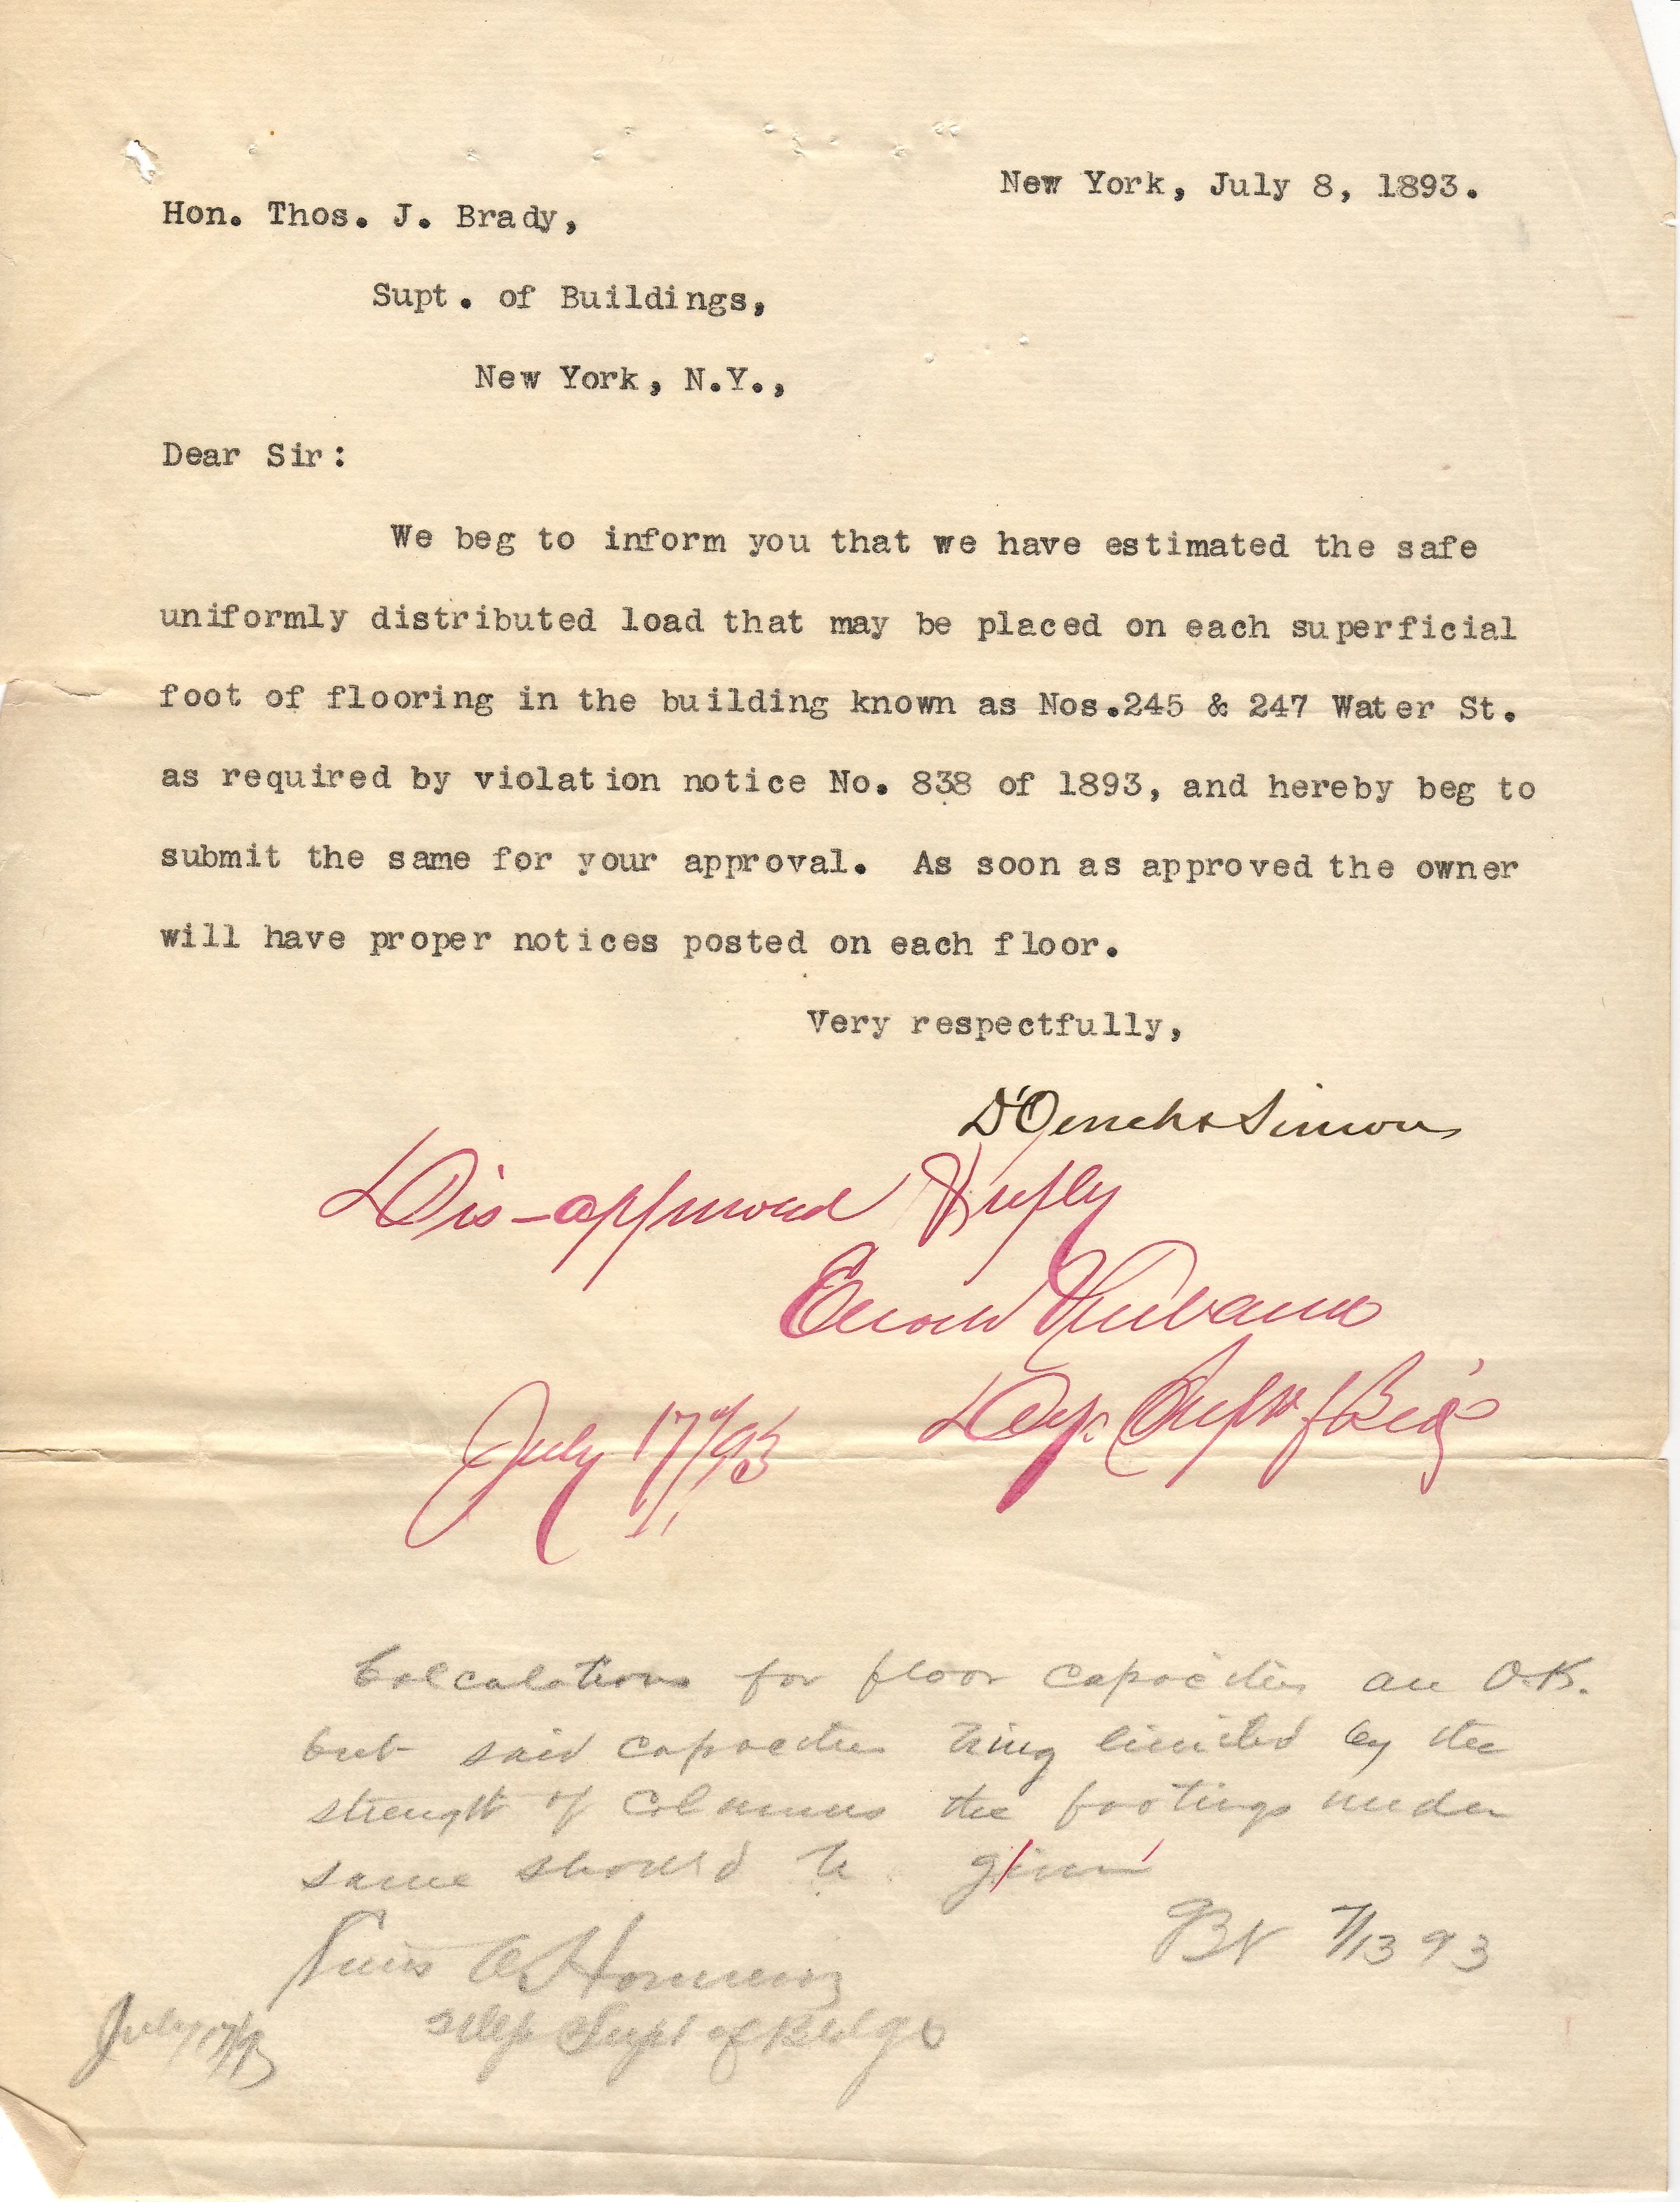 New York, July 8, 1893.
Hon. Thos. J. Brady,
Supt. of Buildings,
New York, N.Y.,
Dear Sir:
We beg to inform you that we have estimated the safe
uniformly distributed load that may be placed on each superficial
foot of flooring in the building known as Nos.245 & 247 Water St.
as required by violation notice No. 838 of 1893, and hereby beg to
submit the same for your approval. As soon as approved the owner
will have proper notices posted on each floor.
Very respectfully,
D'Oench & Simon
Dis-approved
Dep. Supt of Bldgs
July 17/93
Calculations for floor capacities are O.K.
but said capacities being limited by the
strength of columns the footings under
same should be given
7/13 93
Dep Supt of Bldgs
July 17/93